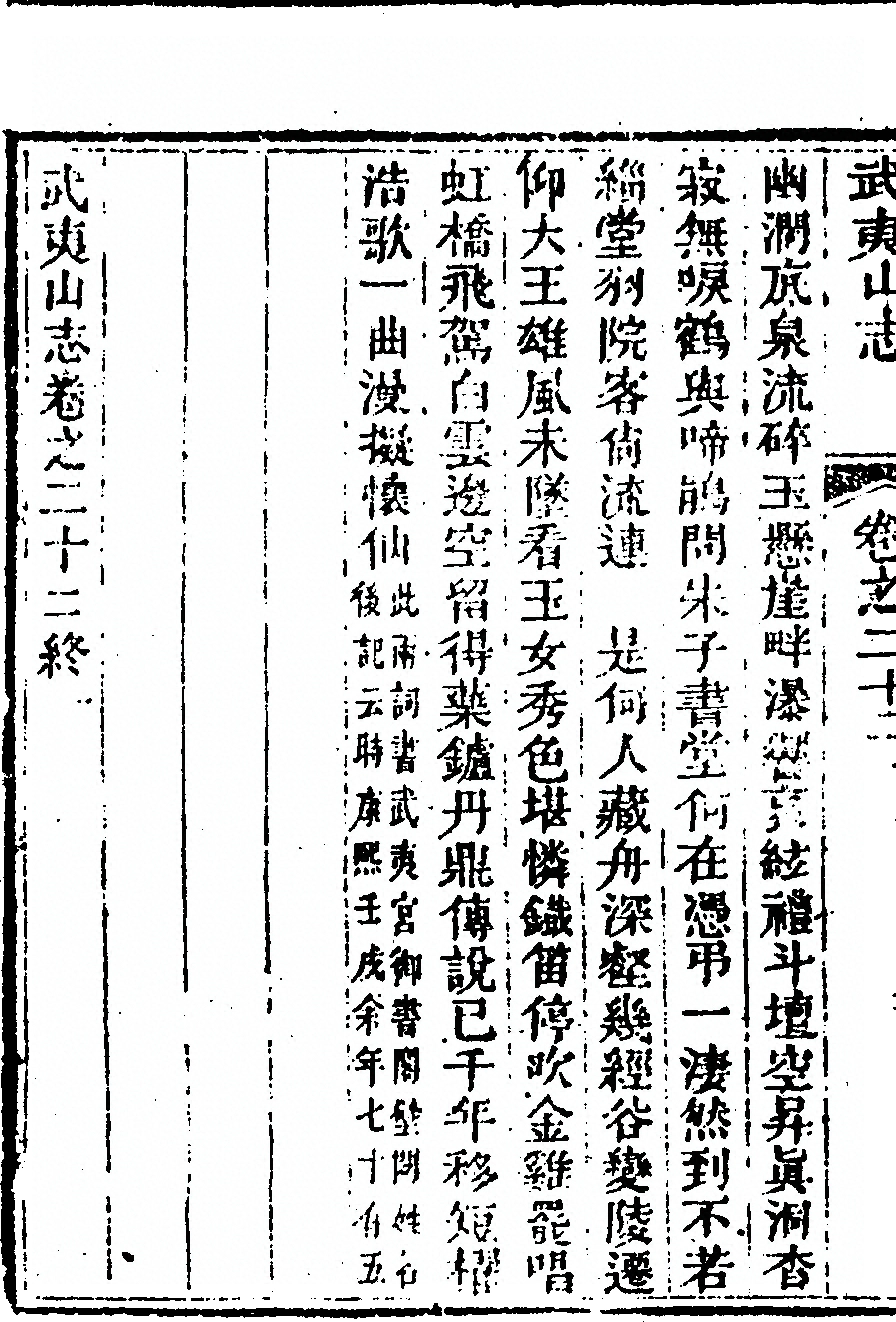 武夷山志 卷之二十二
幽澗底泉流碎玉懸崖畔瀑響紘禮斗壇空昇眞洞杳
寂無唳鶴與啼鵑問朱子書堂何在憑弔一淒然到不若
緇堂羽院客倘流連　是何人藏舟深壑幾經谷變陵遷
仰大王雄風未墜看玉女秀色堪憐鐵笛停吹金雞罷唱
虹橋飛駕白雲邊空留得藥鑪丹鼎傳說已千年移短櫂
浩歌一曲漫擬懷仙此兩詞書武夷宮御書閣壁間姓名
後記云時康熙壬戌余年七十有五
武夷山志卷之二十二終